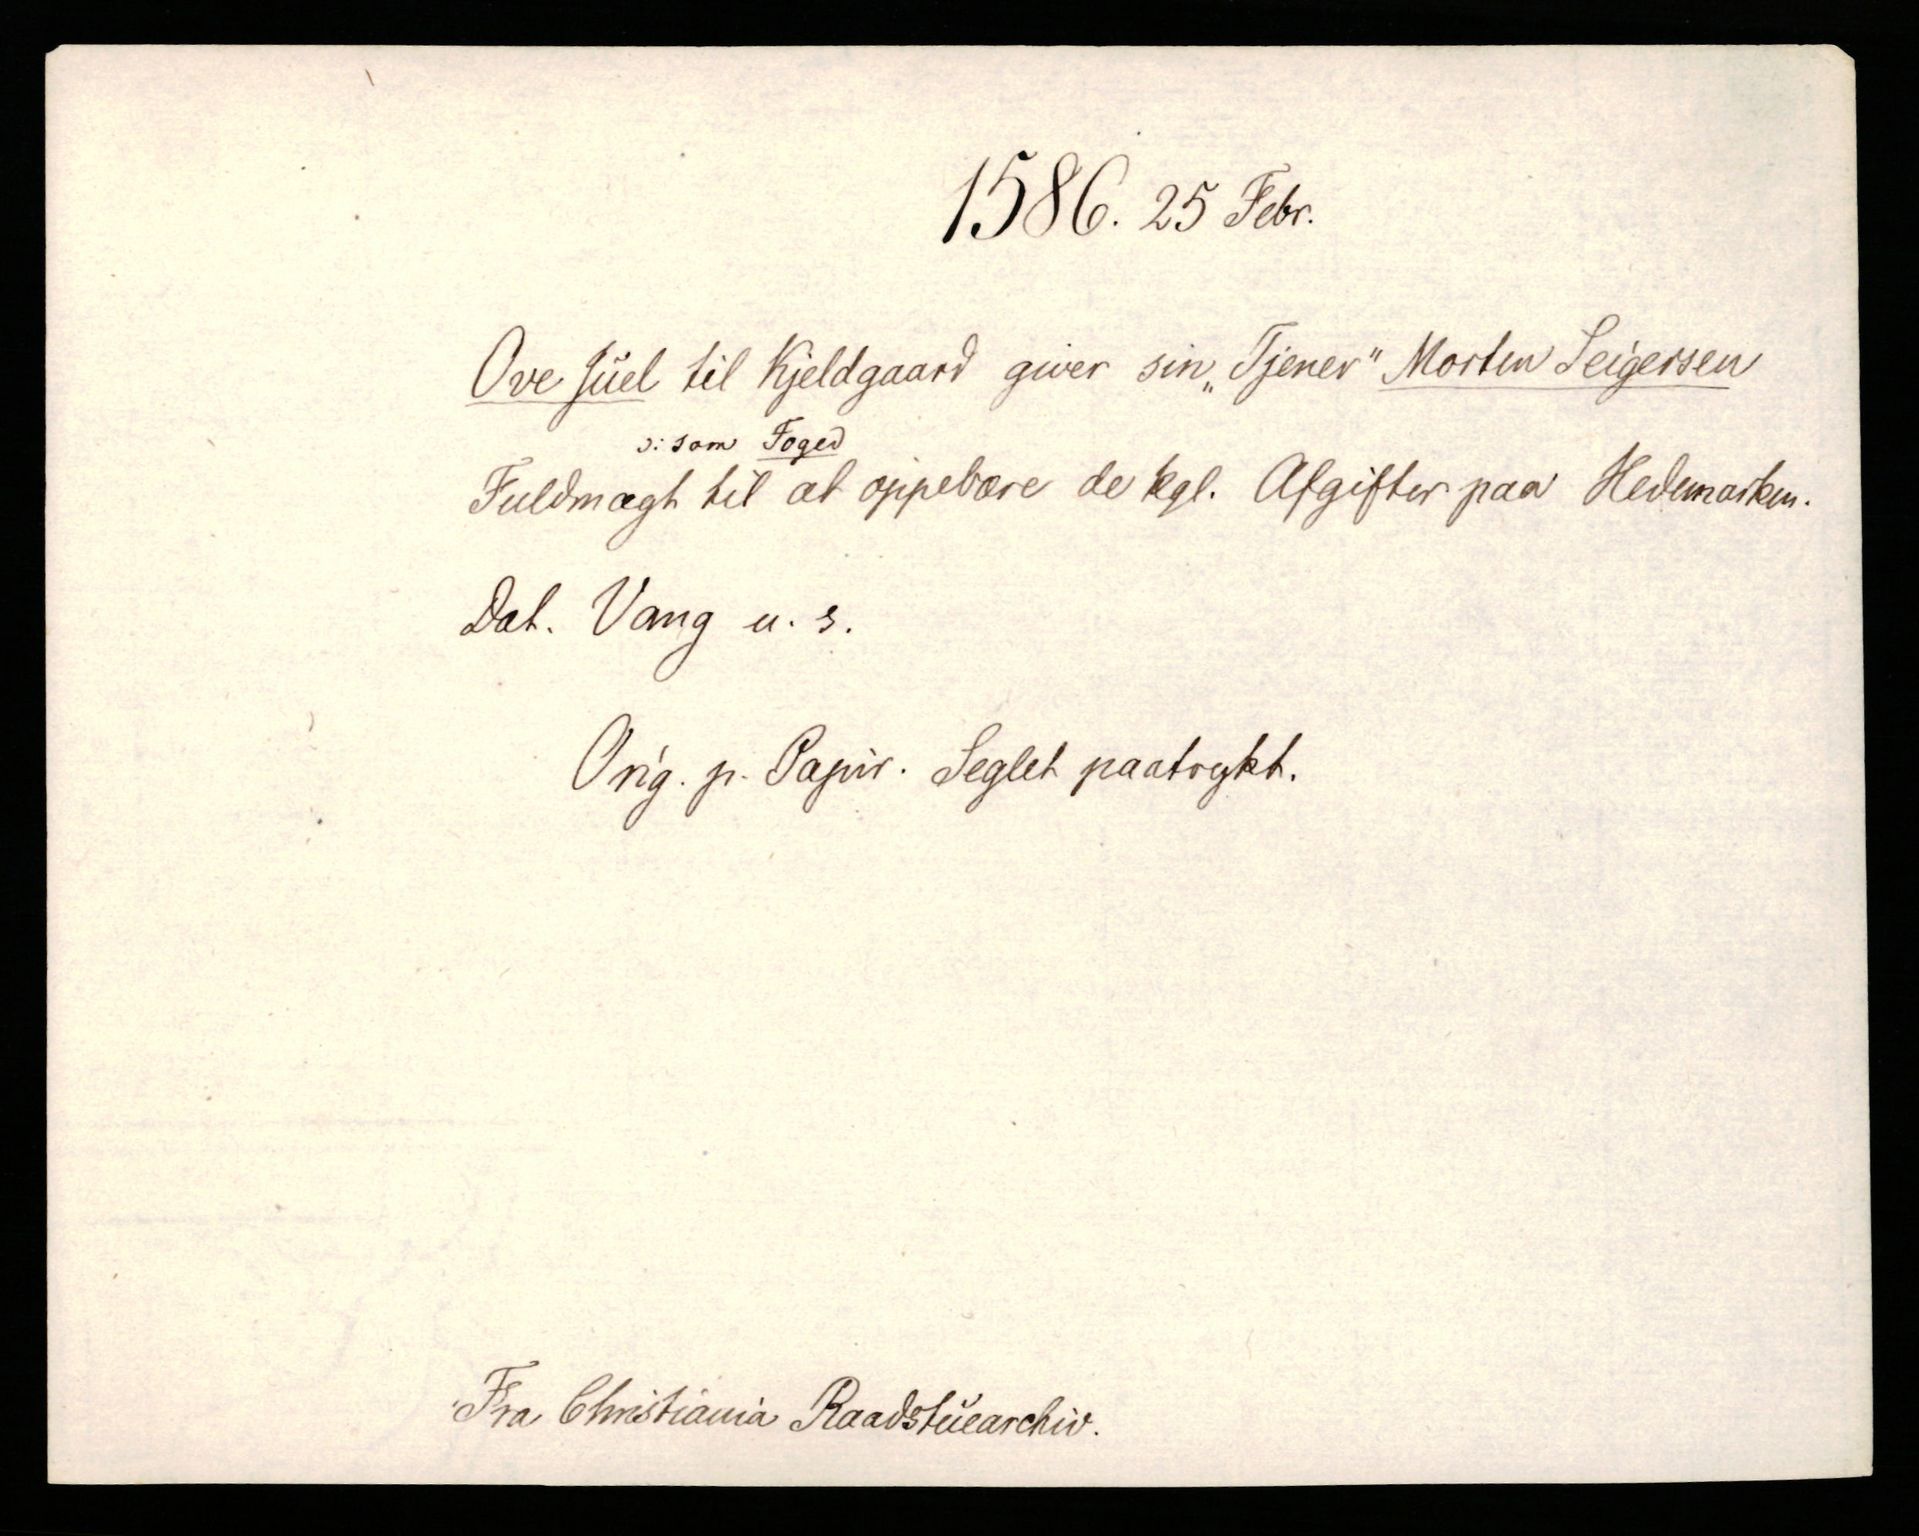 1586. 25 Febr.
Ove Juel til Kjeldgaard giver sin „Tjener" Morten Seigersen
ɔ: som Foged
Fuldmagt til at oppebære de kgl. Afgifter paa Hedemarken.
Dat. Vang u. s.
Orig. p. Papir. Seglet paatrykt.
Fra Christiania Raadstuearchiv.